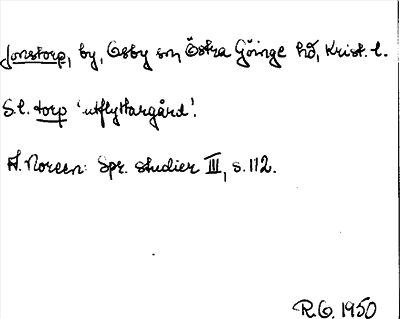 Jonstorp, by, Osby sn, Östra Göinge hd, Krist. l.
S.l. torp 'utflyttargård'.
A. Noreen: Spr. studier III, s. 112.
R.O. 1950